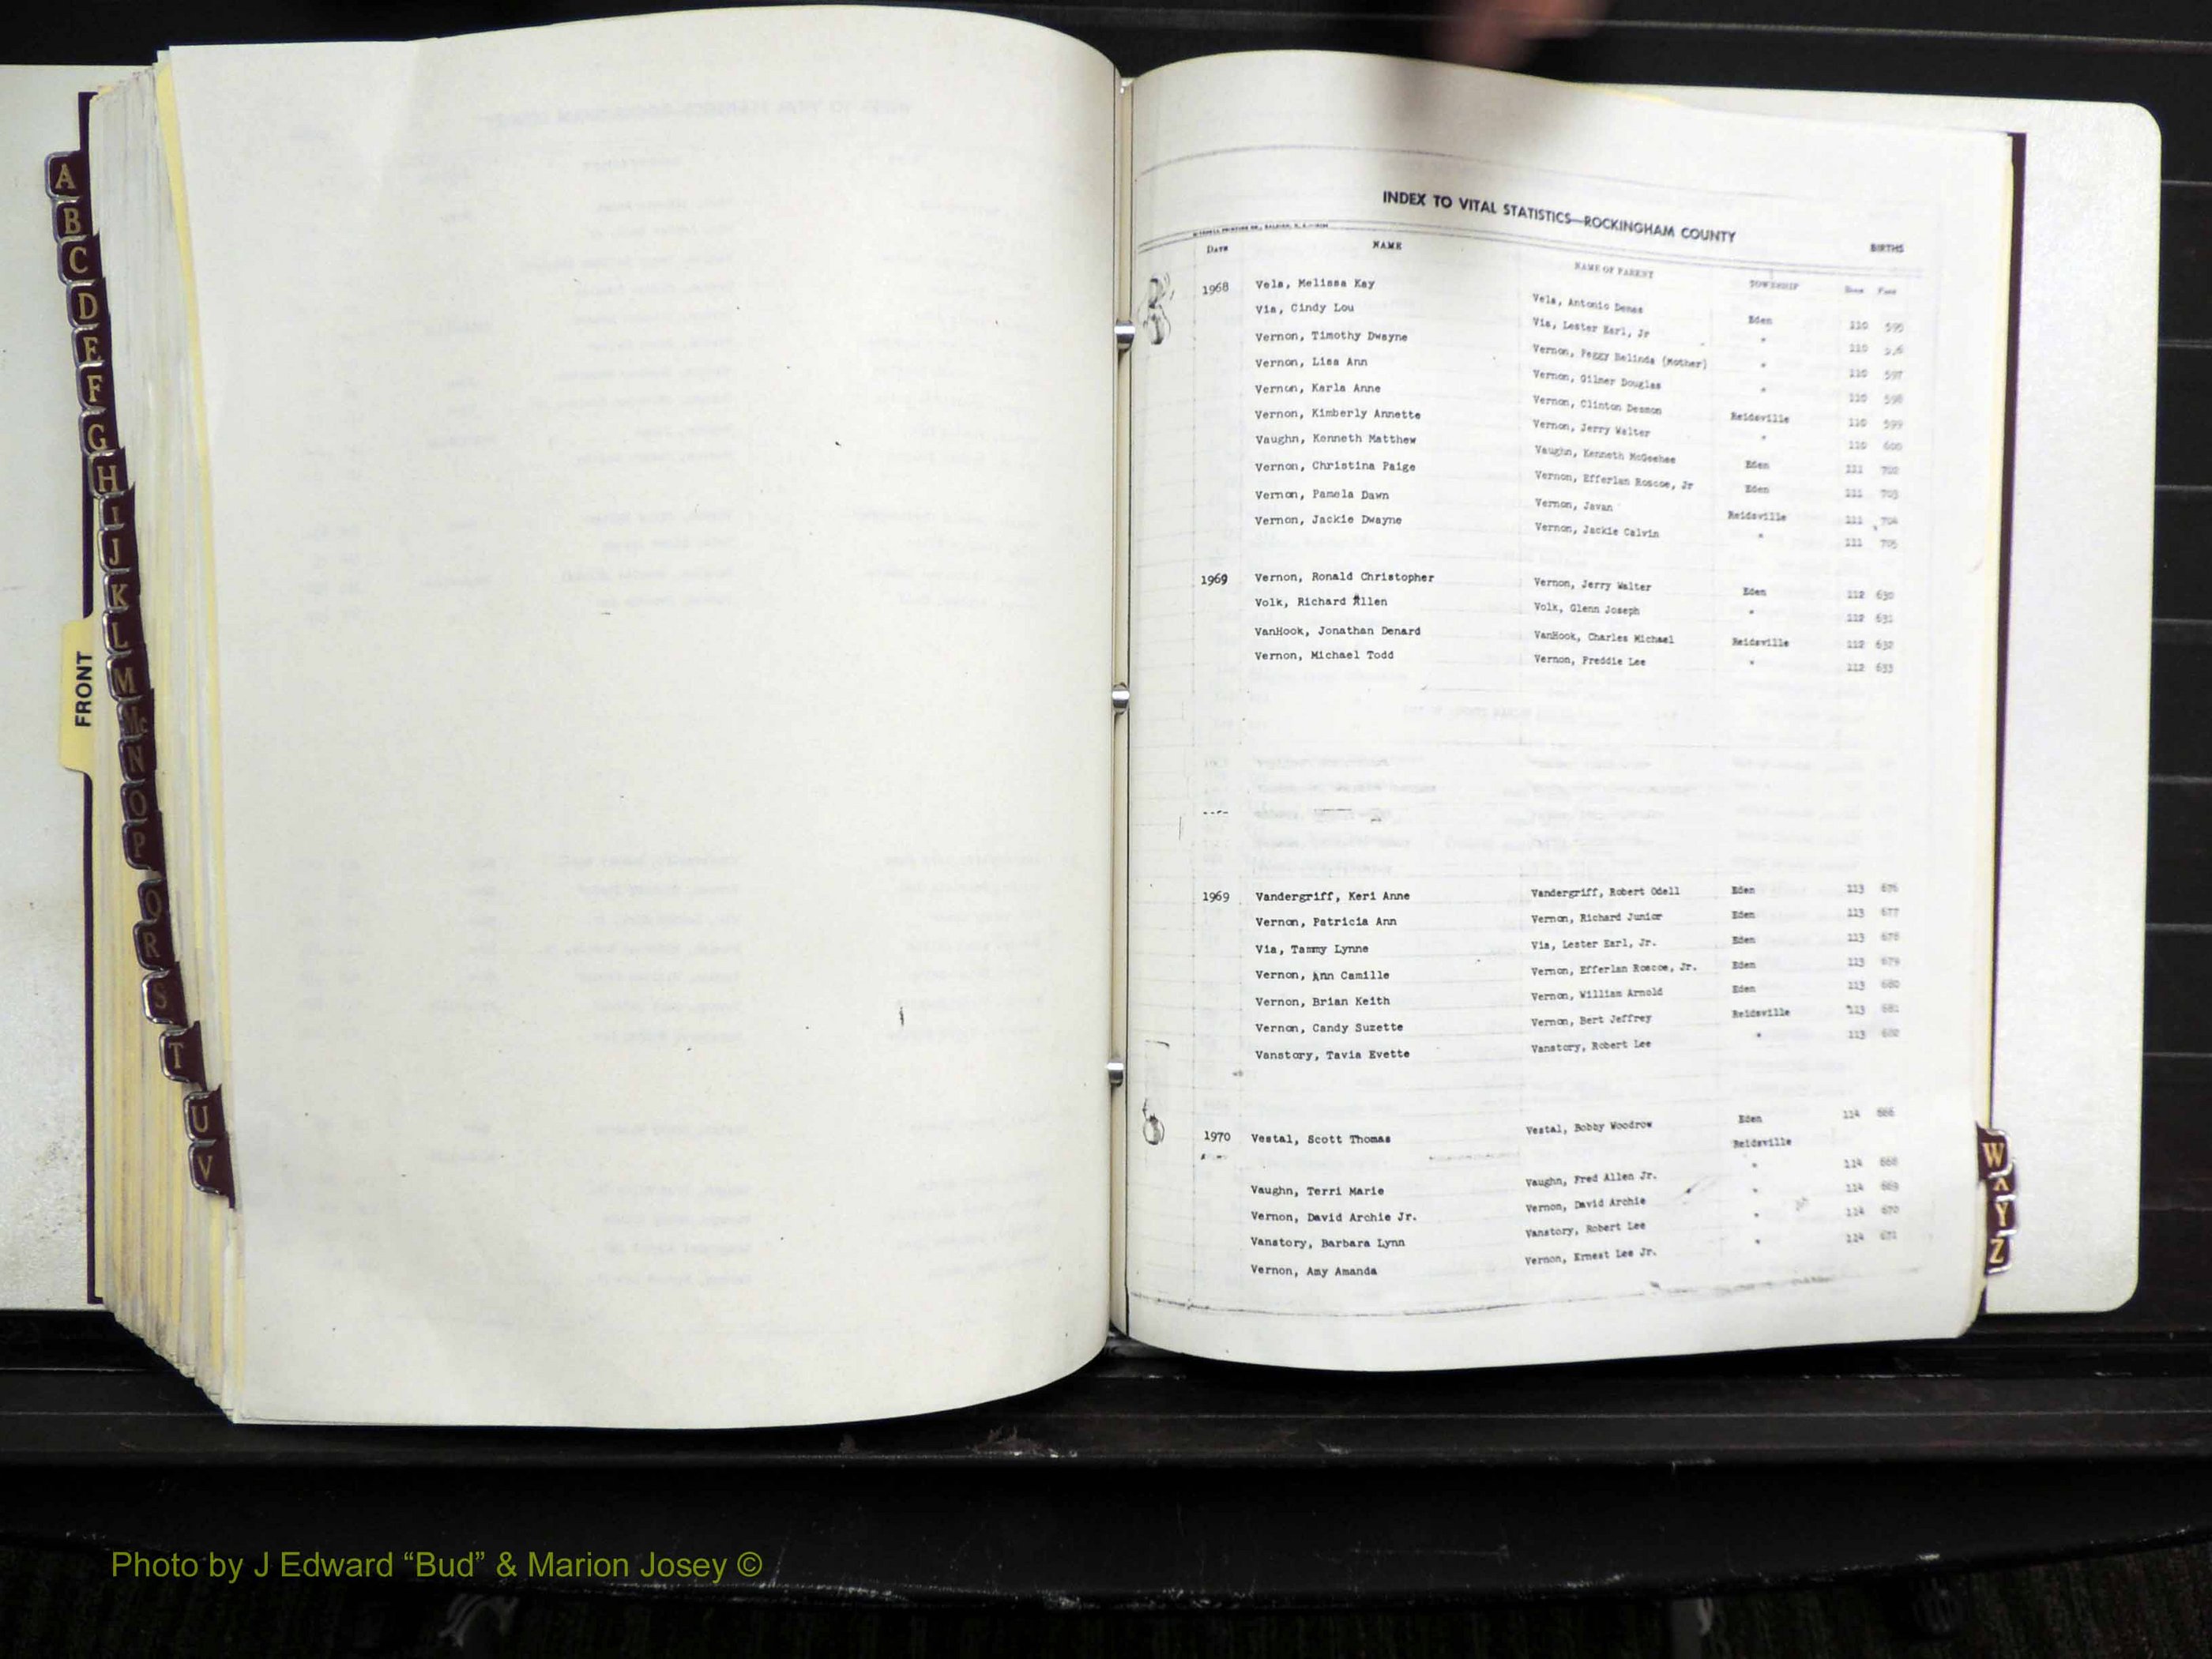 INDEX TO VITAL STATISTICS—ROCKINGHAM COUNTY
BIRTHS
DATE NAME NAME OF PARENT TOWNSHIP BOOK PAGE
1968 Vela, Melissa Kay Vela, Antonio Eden 110 595
Via, Cindy Lou Via, Lester Earl, Jr " 110
Vernon, Timothy Dwayne Vernon, Peggy Belinda (Mother) " 110 597
Vernon, Lisa Ann Vernon, Gilmer Douglas " 110 598
Vernon, Karla Anne Vernon, Clinton Desmon Reidsville 110 599
Vernon, Kimberly Annette Vernon, Jerry Walter " 110 600
Vaughn, Kenneth Matthew Vaughn, Kenneth McGeehee Eden 111 702
Vernon, Christina Paige Vernon, Efferlan Roscoe, Jr Eden 111 703
Vernon, Pamela Dawn Vernon, Javan Reidsville 111 704
Vernon, Jackie Dwayne Vernon, Jackie Calvin " 111 705
1969 Vernon, Ronald Christopher Vernon, Jerry Walter Eden 112 630
Volk, Richard Allen Volk, Glenn Joseph " 112 631
VanHook, Jonathan Denard VanHook, Charles Michael Reidsville 112 632
Vernon, Michael Todd Vernon, Freddie Lee " 112 633
1969 Vandergriff, Keri Anne Vandergriff, Robert Odell Eden 113 676
Vernon, Patricia Ann Vernon, Richard Junior Eden 113 677
Via, Tammy Lynne Via, Lester Earl, Jr. Eden 113 678
Vernon, Ann Camille Vernon, Efferlan Roscoe, Jr. Eden 113 679
Vernon, Brian Keith Vernon, William Arnold Eden 113 680
Vernon, Candy Suzette Vernon, Bert Jeffrey Reidsville 113 681
Vanstory, Tavia Evette Vanstory, Robert Lee " 113 682
1970 Vestal, Scott Thomas Vestal, Bobby Woodrow Eden 114 666
Reidsville
Vaughn, Terri Marie Vaughn, Fred Allen Jr. " 114 668
Vernon, David Archie Jr. Vernon, David Archie " 114 669
Vanstory, Barbara Lynn Vanstory, Robert Lee " 114 670
Vernon, Amy Amanda Vernon, Ernest Lee Jr. " 114 671
A
B
C
D
E
F
G
H
I
J
K
L
M
Mc
N
O
P
Q
R
S
T
U
V
FRONT
W
X
Y
Z
Photo by J Edward “Bud” & Marion Josey ©